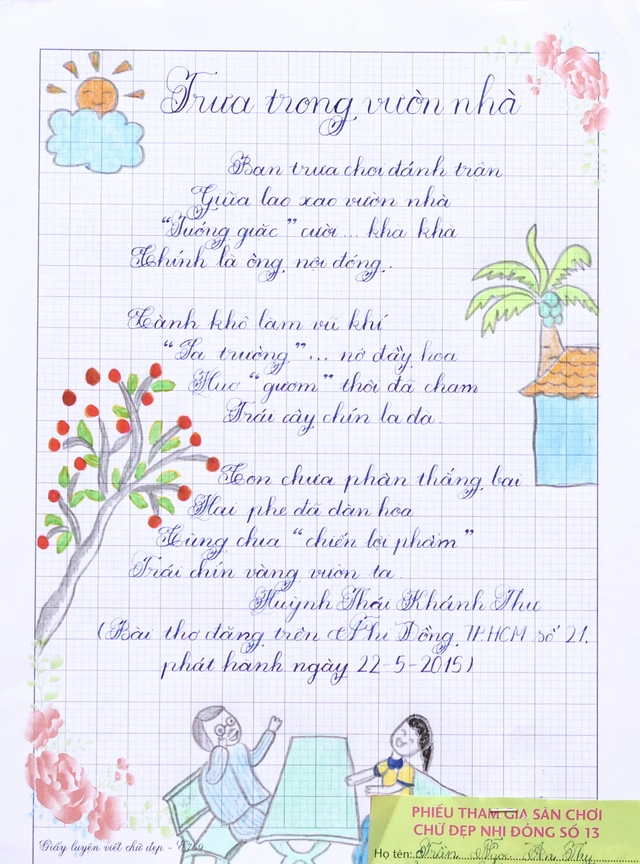 Trưa trong vườn nhà
Ban trưa chơi đánh trận
Giữa lao xao vườn nhà
"Tướng giặc" cười... kha khà
Chính là ông nội đóng.
Cành khô làm vũ khí
"Sa trường"... nở đầy hoa
Huơ "gươm" thôi đã chạm
Trái cây chín la đà.
Còn chưa phân thắng bại
Hai phe đã dàn hòa
Cùng chia "chiến lợi phẩm"
Trái chín vàng vườn ta.
Huỳnh Thái Khánh Thư
(Bài thơ đăng trên Nhi Đồng TP.HCM số 21,
phát hành ngày 22-5-2015)
PHIẾU THAM GIA SÂN CHƠI
CHỮ ĐẸP NHI ĐỒNG SỐ 13
Giấy luyện viết chữ đẹp -
Họ tên: Trần Ngọc An Thy